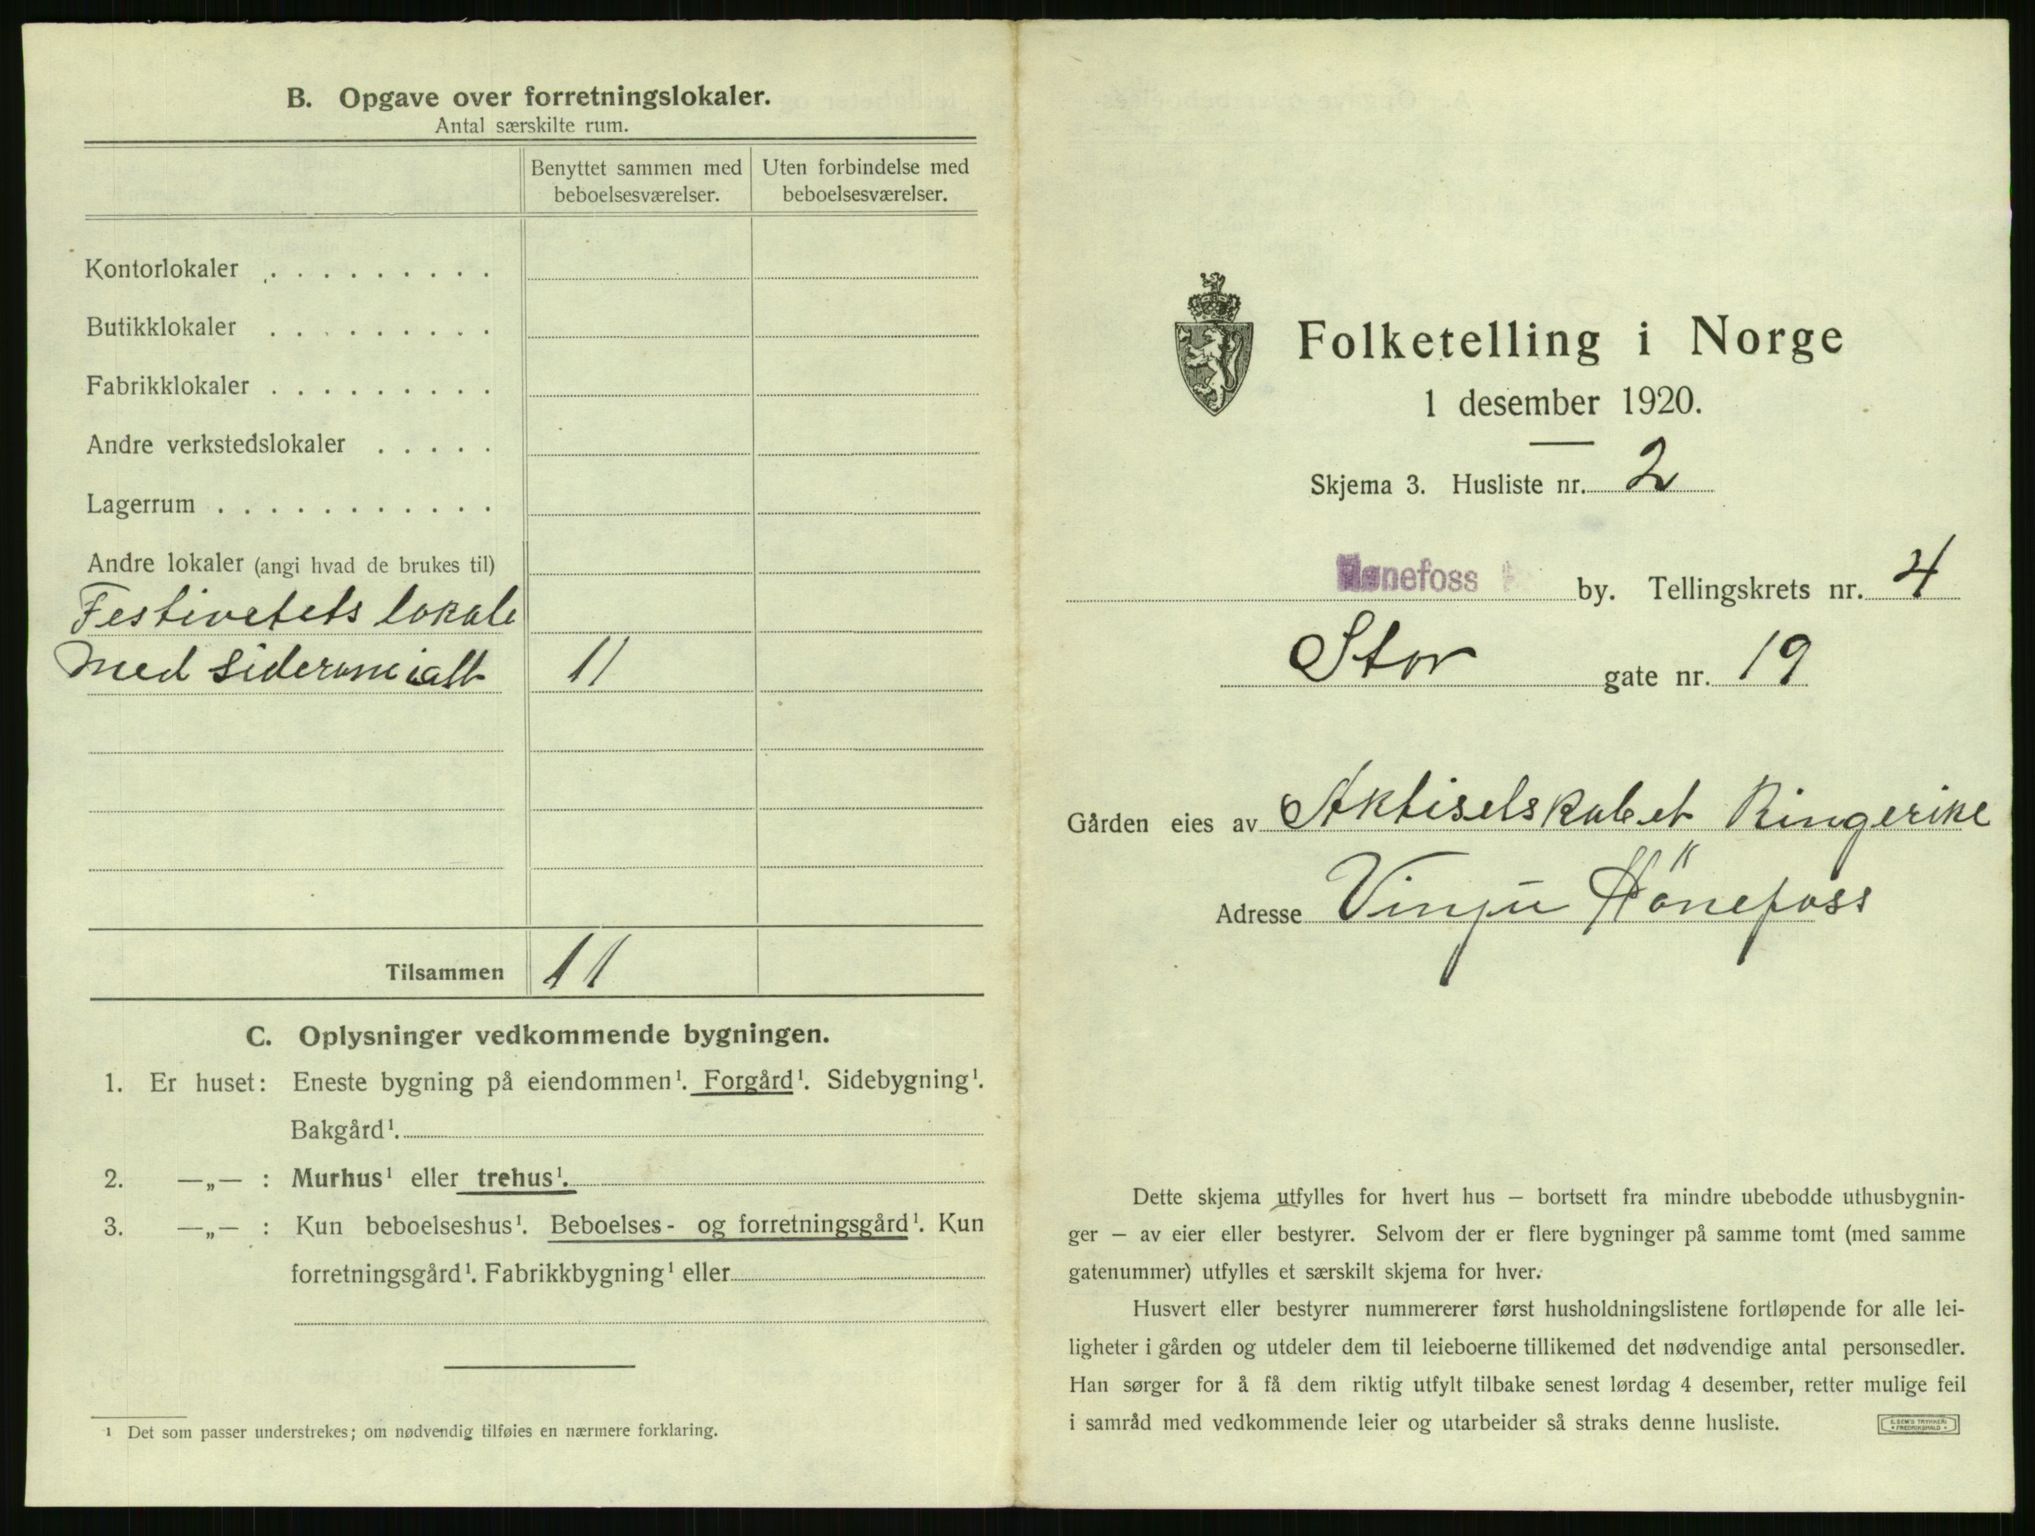 B. Opgave over forretningslokaler.
Antal særskilte rum.
Benyttet sammen med beboelsesværelser.
Uten forbindelse med beboelsesværelser.
Kontorlokaler . . . . . . . . .
Butikklokaler . . . . . . . . .
Fabrikklokaler . . . . . . . . .
Andre verkstedslokaler . . . . .
Lagerrum . . . . . . . . . . .
Andre lokaler (angi hvad de brukes til)
Festivetets lokale
Med siderum ialt 11
Tilsammen 11
C. Oplysninger vedkommende bygningen.
1. Er huset: Eneste bygning på eiendommen¹. Forgård¹. Sidebygning¹.
Bakgård¹.
2. —„— : Murhus¹ eller trehus¹.
3. —„— : Kun beboelseshus¹. Beboelses- og forretningsgård¹. Kun
forretningsgård¹. Fabrikkbygning¹ eller
¹ Det som passer understrekes; om nødvendig tilføies en nærmere forklaring.
Folketelling i Norge
1 desember 1920.
Skjema 3. Husliste nr. 2
Hønefoss by. Tellingskrets nr. 4
Stor gate nr. 19
Gården eies av Aktiselskabet Ringerike
Adresse Hönefoss
Dette skjema utfylles for hvert hus — bortsett fra mindre ubebodde uthusbygnin-
ger — av eier eller bestyrer. Selvom der er flere bygninger på samme tomt (med samme
gatenummer) utfylles et særskilt skjema for hver.
Husvert eller bestyrer nummererer først husholdningslistene fortløpende for alle lei-
ligheter i gården og utdeler dem til leieboerne tillikemed det nødvendige antal personsedler.
Han sørger for å få dem riktig utfylt tilbake senest lørdag 4 desember, retter mulige feil
i samråd med vedkommende leier og utarbeider så straks denne husliste.